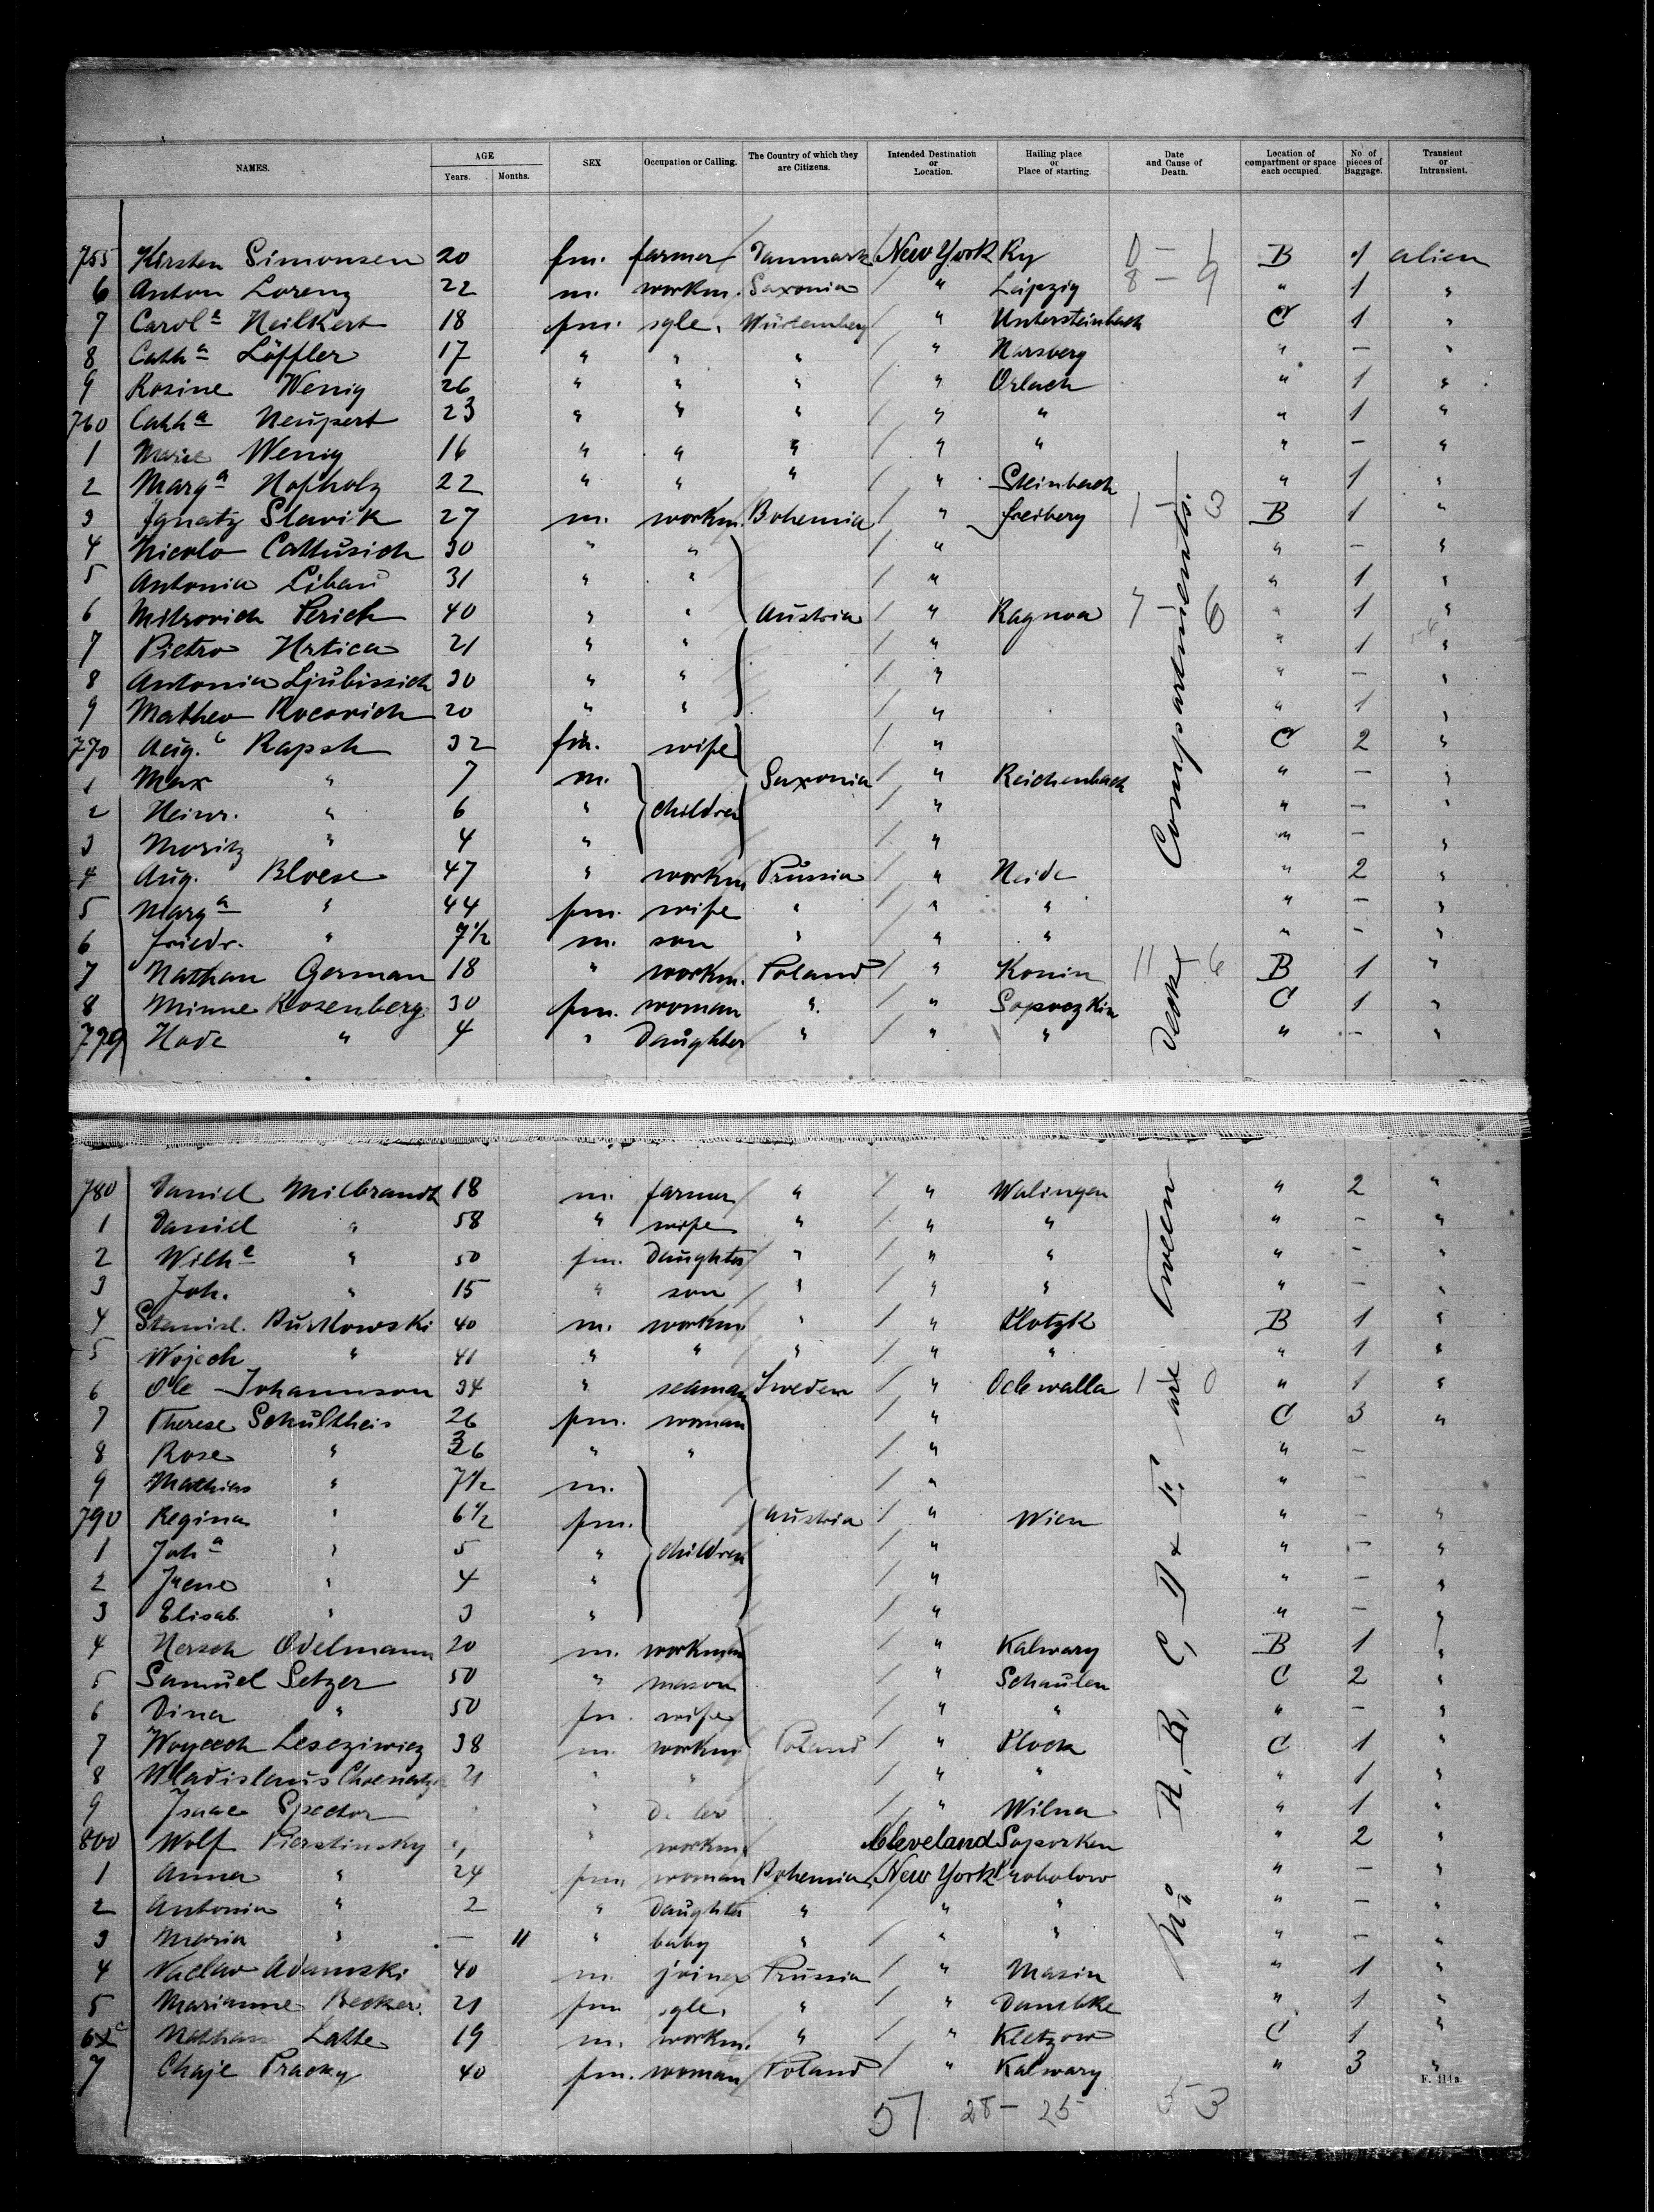 NAMES. AGE Years. Months. SEX Occupation or Calling. The Country of which they are Citizens. Intended Destination or Location. Hailing place or Place of starting. Date and Cause of Death. Location of compartment or space each occupied. No. of pieces of Baggage. Transient or Intransient.
755 Kirsten Simonsen 20 fm. farmer Danmark / New York Ry 0 - 1 B 1 alien
6 Anton Lorenz 22 m. workm. Saxonia / " Leipzig 8 - 9 " 1 "
7 Carol a Heilkert 18 fm. sgle. Würtemberg / " Untersteinbach C 1 "
8 Cath a Löffler 17 " " " / " Harsberg " — "
9 Rosine Wenig 26 " " " / " Orlach " 1 "
760 Cath a Neupert 23 " " " / " " " 1 "
1 Marie Wenig 16 " " " / " " " — "
2 Marg a Hofholz 22 " " " / " Steinbach " 1 "
3 Ignatz Slavik 27 m. workm. Bohemia / " Freiberg 1 3 B 1 "
4 Nicolo Cattusich 30 " " / " " — "
5 Antonia Libau 31 " " / " " 1 "
6 Mitrovich Perich 40 " " Austria / " Ragnoa 7 6 " 1 "
7 Pietro Hrtica 21 " " / " " 1 "
8 Antonia Ljubissich 30 " " / " " — "
9 Matheo Kocovich 20 " " / " " 1 "
770 Aug. e Rapsh 32 fm. wife / " C 2 "
1 Max " 7 m. Saxonia / " Reichenbach " — "
2 Heinr. " 6 " children / " " — "
3 Moritz " 4 " / " " — "
4 Aug. Bloese 47 " workm Prussia / " Heide " 2 "
5 Marg a " 44 fm. wife " / " " " — "
6 Friedr. " 7 1/2 m. son " / " " " — "
7 Nathan German 18 " workm. Poland / " Konin 11 6 B 1 "
8 Minne Rosenberg 30 fm. woman " / " Sopoczkin C 1 "
779 Hode " 4 " Daughter " / " " " — "
780 Daniel Milbrandt 18 m. farmer " / " Walingen " 2 "
1 Daniel " 58 " wife " / " " " — "
2 Wilh e " 50 fm. Daughter " / " " " — "
3 Joh. " 15 " son " / " " " — "
4 Stanisl. Burkowski 40 m. workm " / " Plotzk B 1 "
5 Wojech " 41 " " " / " " " 1 "
6 Ole Johannson 34 " seaman Sweden / " Odewalla 1 0 " 1 "
7 Therese Schultheis 26 fm. woman / " C 3 "
8 Rose " 36 " " / " " —
9 Mathias " 7 1/2 m. / " " —
790 Regina " 6 1/2 fm. Austria / " Wien " — "
1 Joh a " 5 " children / " " — "
2 Irene " 4 " / " " — "
3 Elisab. " 3 " / " " — "
4 Hersch Odelmann 20 m. workman / " Kalwary B 1
5 Samuel Setzer 50 " mason / " Schaulen C 2 "
6 Dina " 50 fm. wife / " " " — "
7 Woycech Lescziwicz 38 m. workm. Poland / " Plock C 1 "
8 Wladislaus 21 " " / " " " 1 "
9 Isaac Spector " / " Wilna " 1 "
800 Wolf " workm. Cleveland " 2 "
1 Anna " 24 fm woman Bohemia / New York " — "
2 Antonia " 2 " Daughter " " " " — "
3 Maria " — 11 " baby " / " " " — "
4 Vaclav Adamski 40 m. joiner Prussia / " Masin " 1 "
5 Marianne Becker. 21 fm sgle. " / " Dambke " 1 "
6 Nathan Latte 19 m. workm. " / " Kletzow C 1 "
7 Chaje Pracky 40 fm. woman Poland / " Kalwary " 3 "
F. 114a.
57 28 - 25 53
A, B, C, D & E are Tween Decks Compartments.